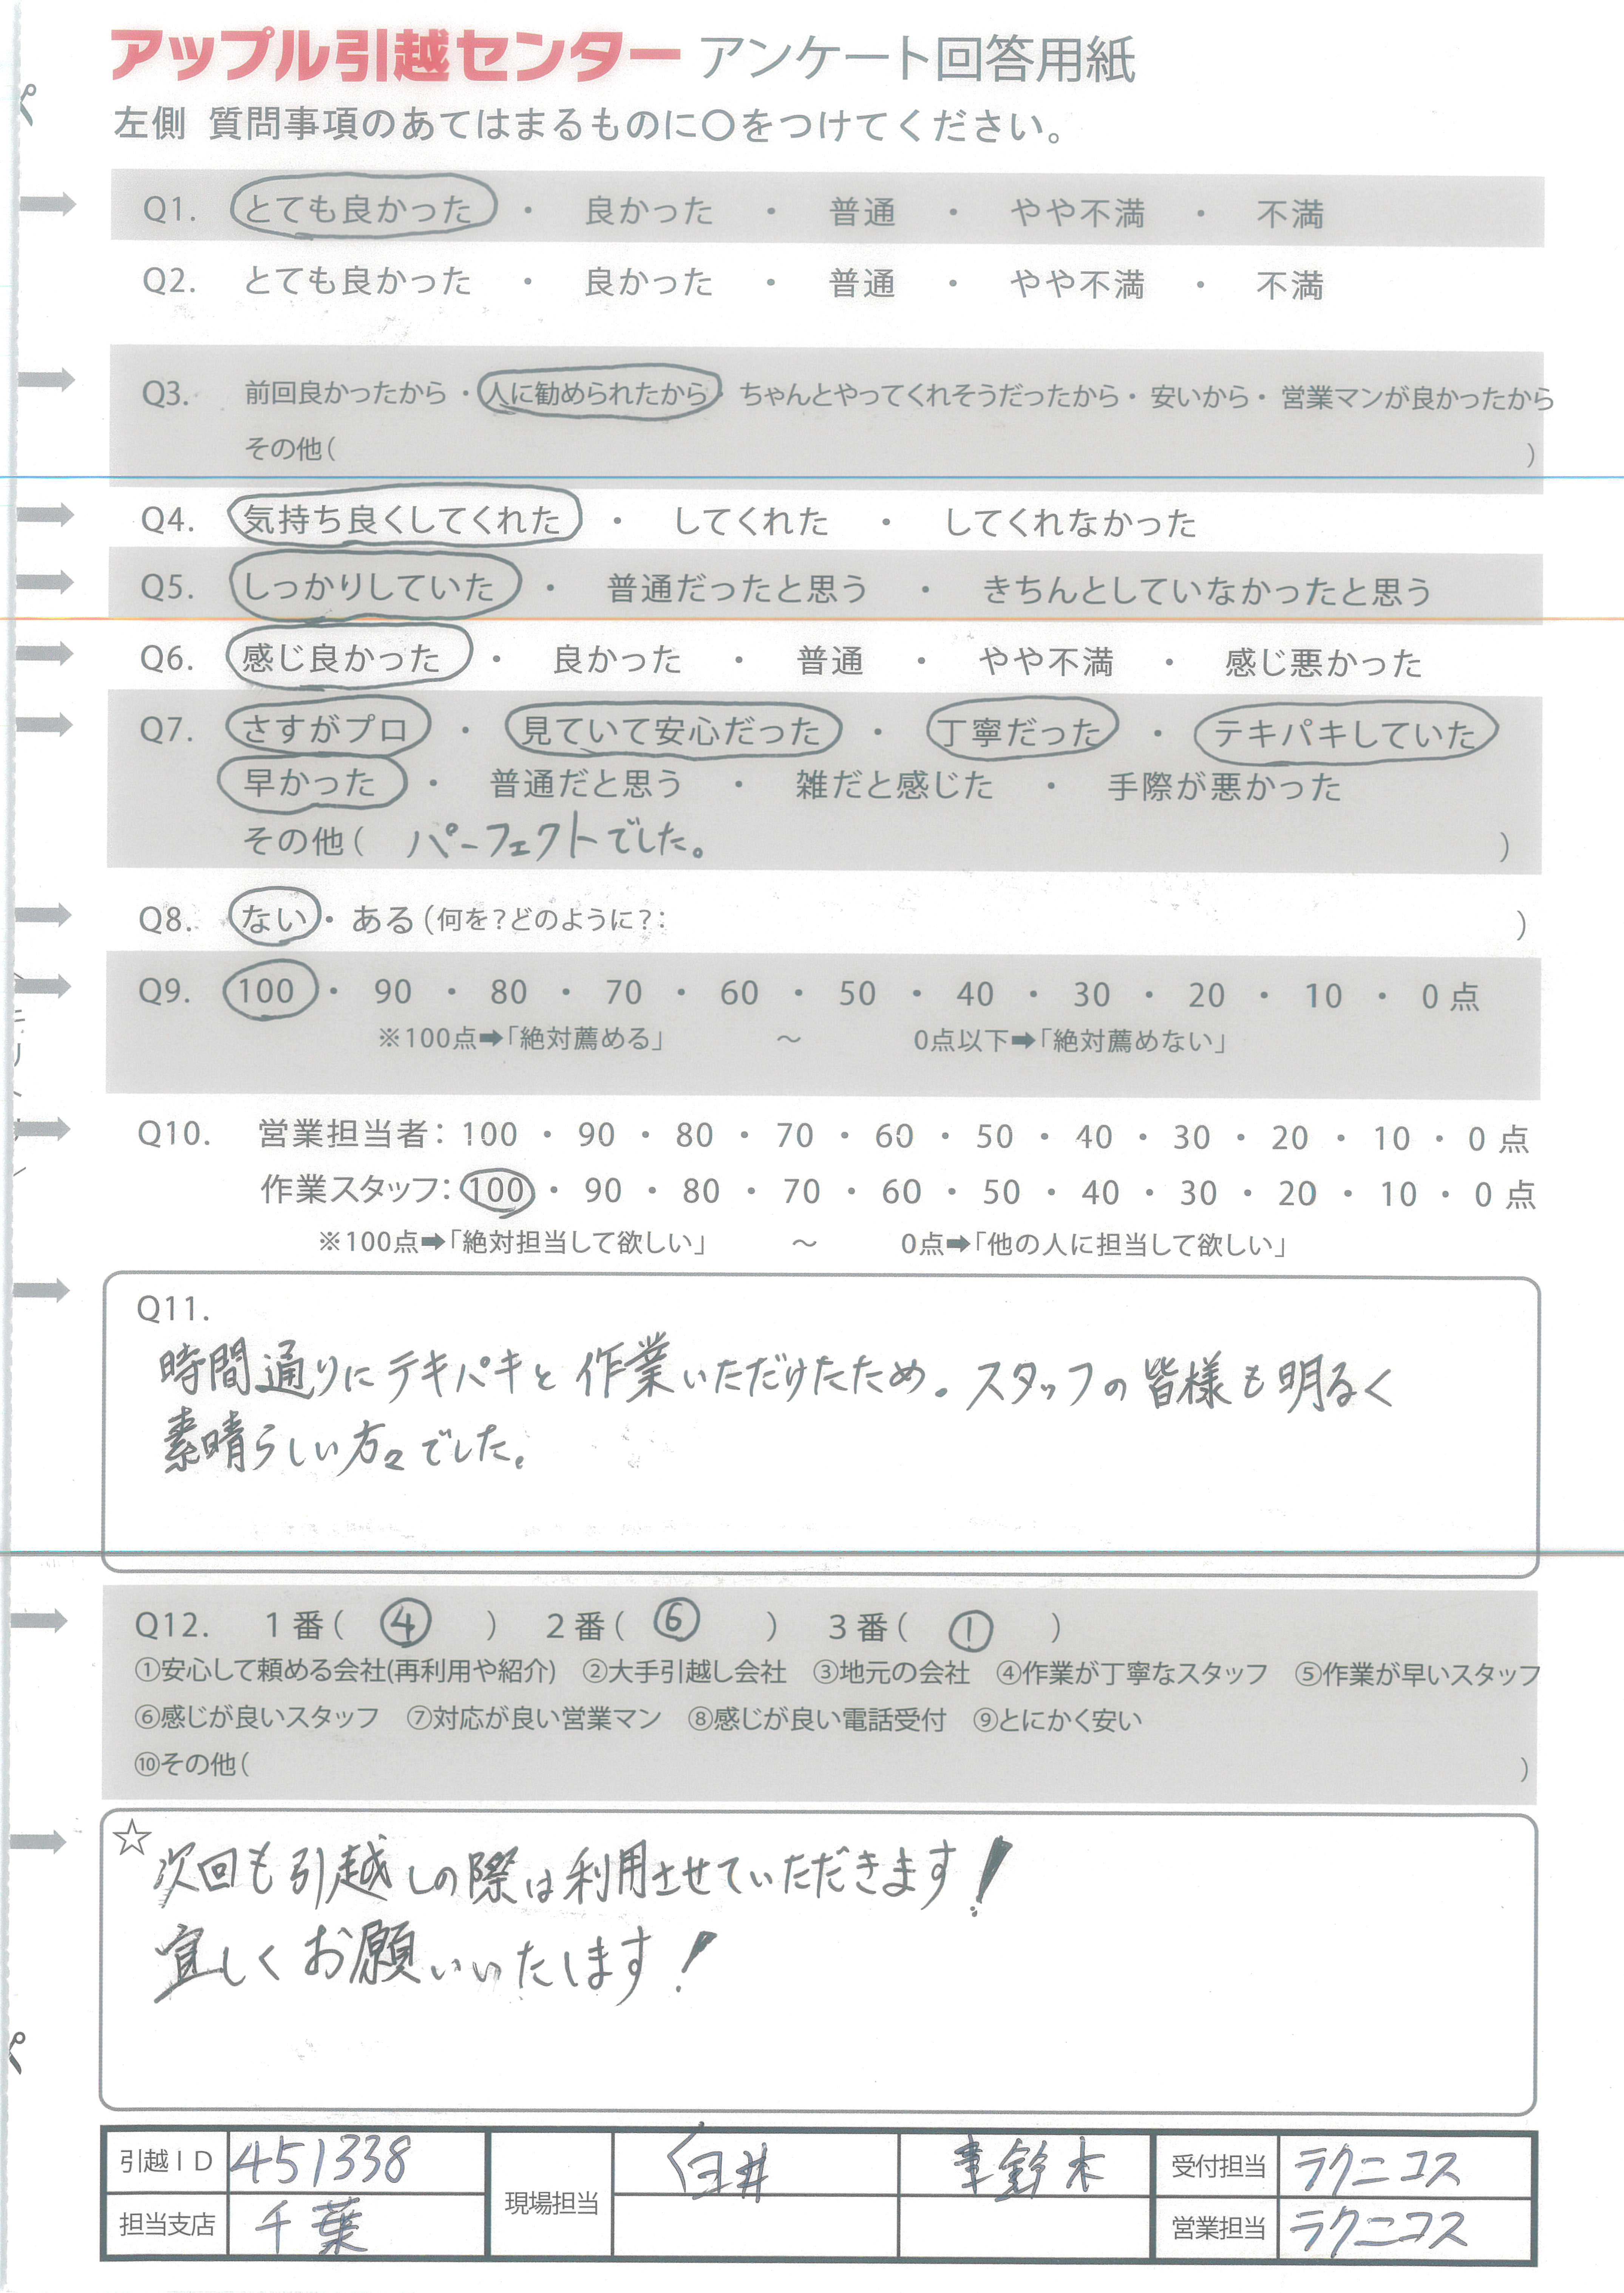 アップル引越センター アンケート回答用紙
左側 質問事項のあてはまるものに○をつけてください。
Q1. とても良かった ・ 良かった ・ 普通 ・ やや不満 ・ 不満
Q2. とても良かった ・ 良かった ・ 普通 ・ やや不満 ・ 不満
Q3. 前回良かったから ・ 人に勧められたから ・ ちゃんとやってくれそうだったから ・ 安いから ・ 営業マンが良かったから
その他( )
Q4. 気持ち良くしてくれた ・ してくれた ・ してくれなかった
Q5. しっかりしていた ・ 普通だったと思う ・ きちんとしていなかったと思う
Q6. 感じ良かった ・ 良かった ・ 普通 ・ やや不満 ・ 感じ悪かった
Q7. さすがプロ ・ 見ていて安心だった ・ 丁寧だった ・ テキパキしていた
早かった ・ 普通だと思う ・ 雑だと感じた ・ 手際が悪かった
その他( パーフェクトでした。 )
Q8. ない ・ ある (何を?どのように?: )
Q9. 100 ・ 90 ・ 80 ・ 70 ・ 60 ・ 50 ・ 40 ・ 30 ・ 20 ・ 10 ・ 0 点
※100点➡「絶対薦める」 ～ 0点以下➡「絶対薦めない」
Q10. 営業担当者: 100 ・ 90 ・ 80 ・ 70 ・ 60 ・ 50 ・ 40 ・ 30 ・ 20 ・ 10 ・ 0 点
作業スタッフ: 100 ・ 90 ・ 80 ・ 70 ・ 60 ・ 50 ・ 40 ・ 30 ・ 20 ・ 10 ・ 0 点
※100点➡「絶対担当して欲しい」 ～ 0点➡「他の人に担当して欲しい」
Q11.
時間通りにテキパキと作業いただけたため。スタッフの皆様も明るく
素晴らしい方々でした。
Q12. 1番( ④ ) 2番( ⑥ ) 3番( ① )
①安心して頼める会社(再利用や紹介) ②大手引越し会社 ③地元の会社 ④作業が丁寧なスタッフ ⑤作業が早いスタッフ
⑥感じが良いスタッフ ⑦対応が良い営業マン ⑧感じが良い電話受付 ⑨とにかく安い
⑩その他( )
☆
次回も引越しの際は利用させていただきます!
宜しくお願いいたします!
引越ID 451338 現場担当 臼井 鈴木 受付担当 ラクニコス
担当支店 千葉 営業担当 ラクニコス